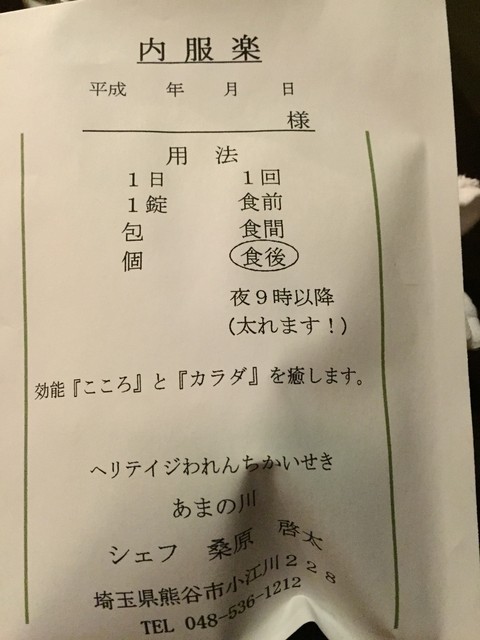 内服楽
平成 年 月 日
様
用 法
1日 1回
1錠 食前
包 食間
個 食後
夜9時以降
(太れます!)
効能『こころ』と『カラダ』を癒します。
ヘリテイジわれんちかいせき
あまの川
シェフ 桑原 啓太
埼玉県熊谷市小江川228
TEL 048-536-1212